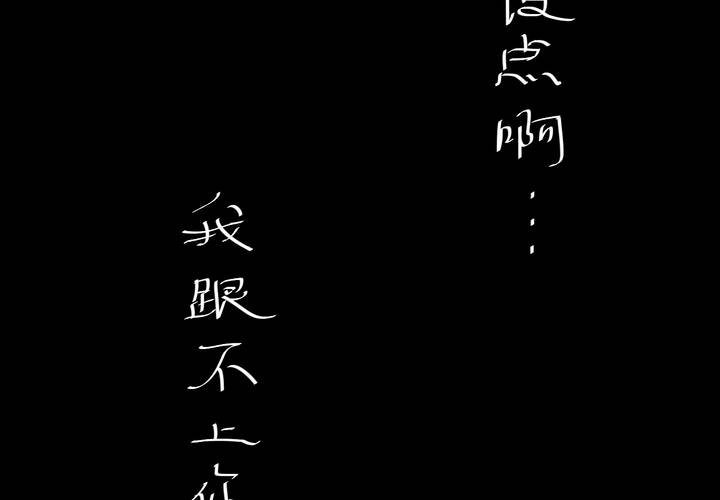 点啊⋮
我跟不上你